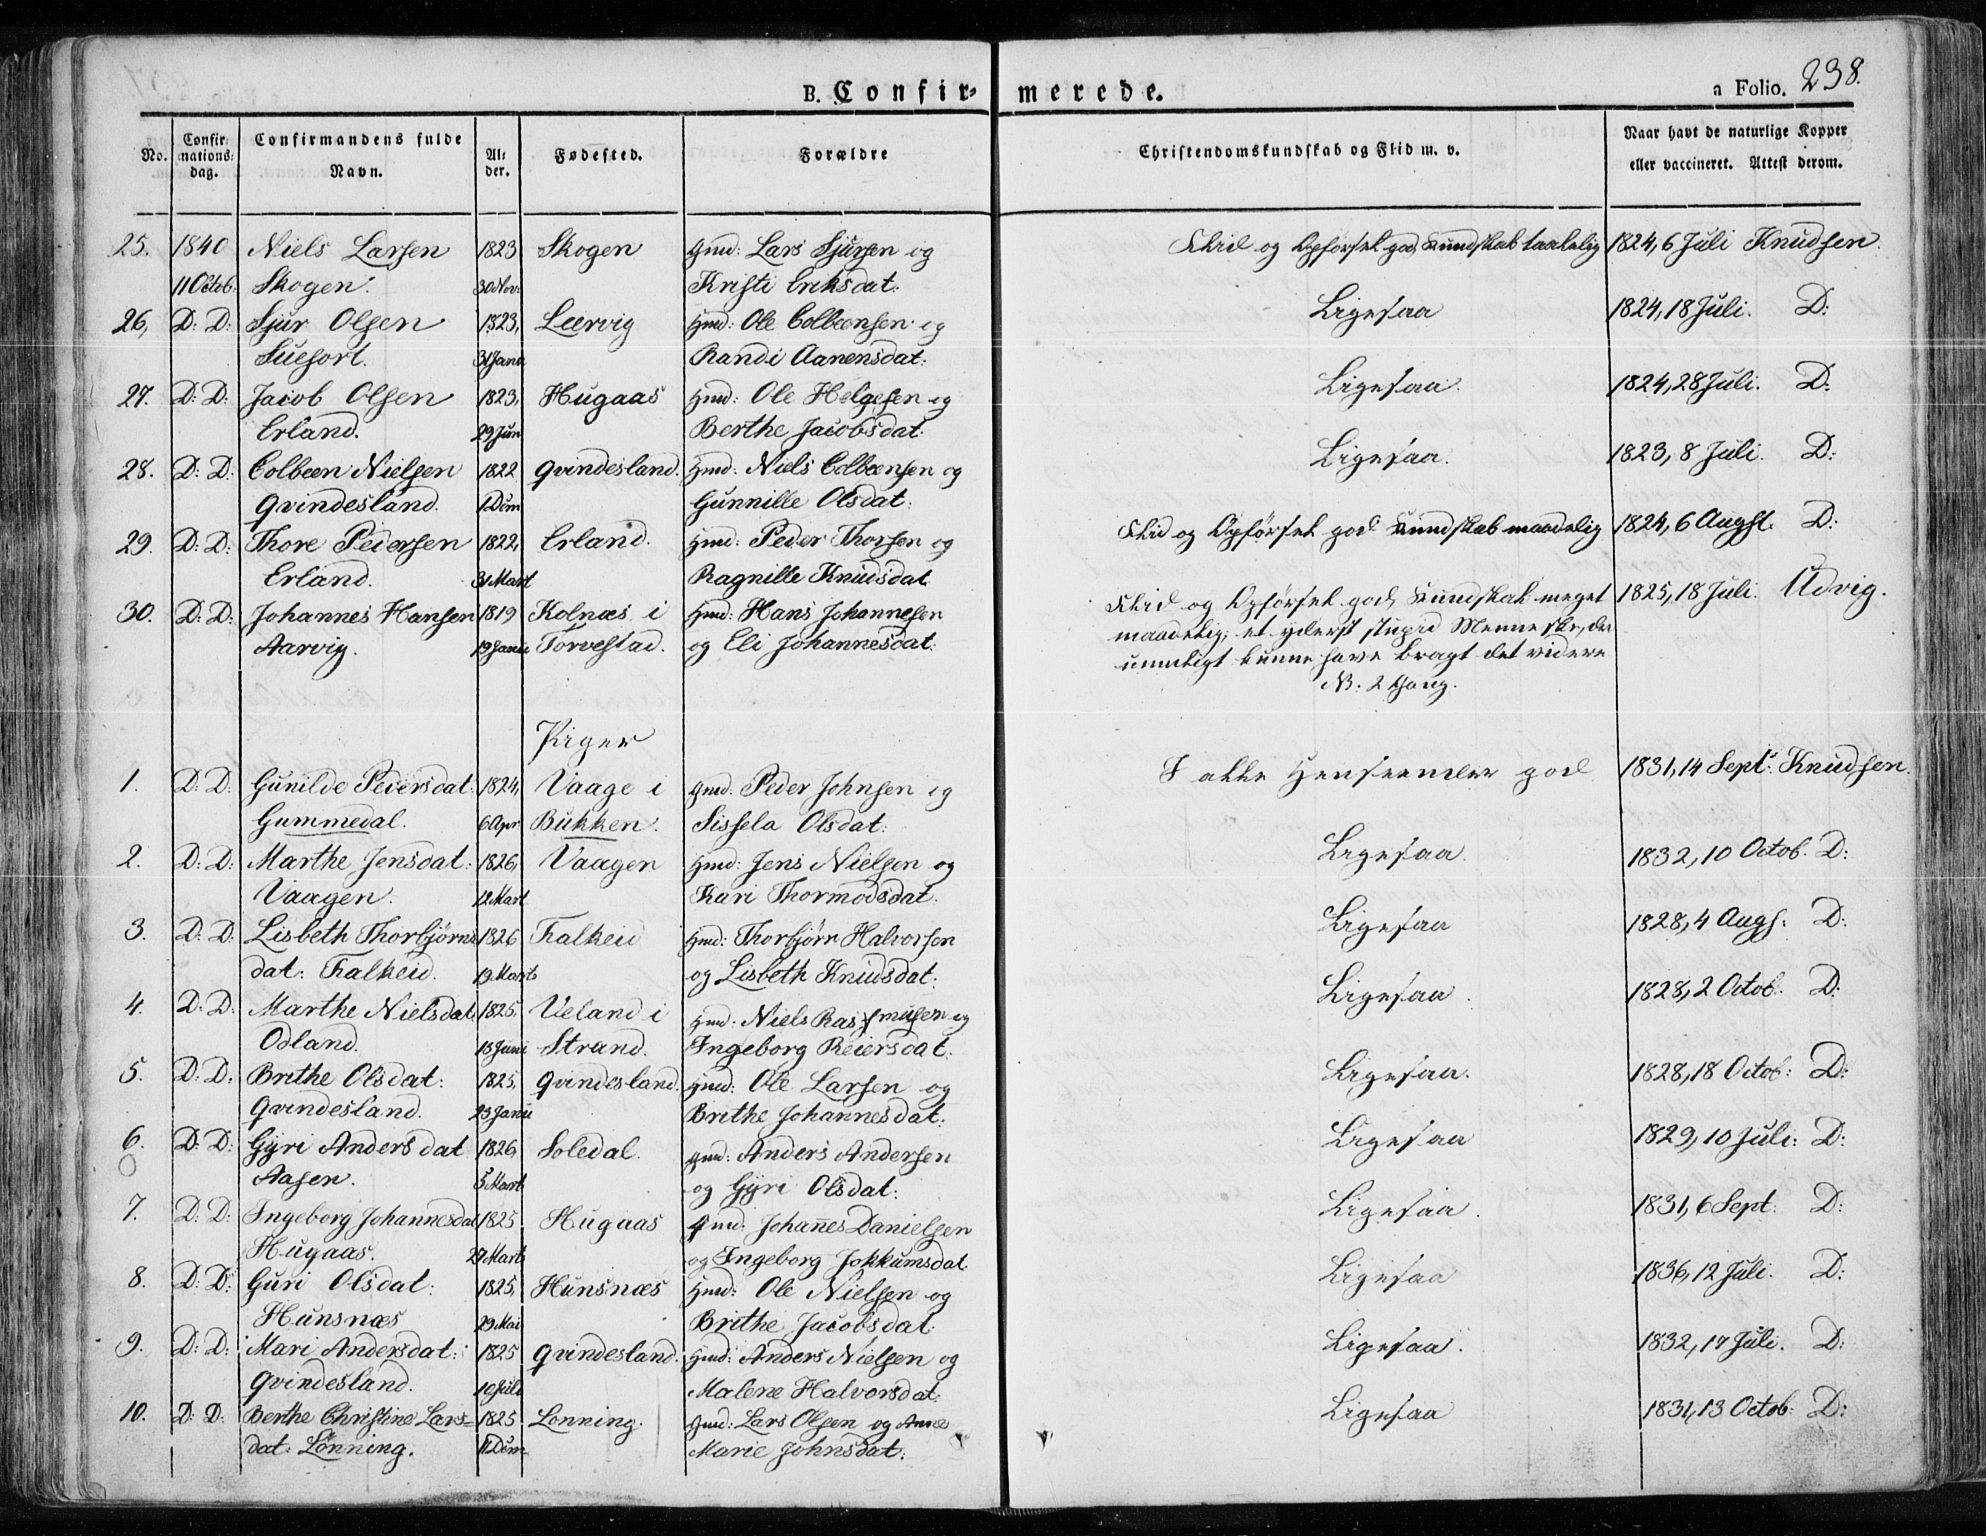 B. Confir- merede. a Folio. 238.
No. Confir: mations: dag. Confirmandens fulde Navn. Al: der. Fødested. Forældre Christendomskundskab og Flid m. v. Naar havt de naturlige Kopper eller vaccineret. Attest derom.
25. 1840 Niels Larsen 1823 Skogen Gmd: Lars Sjursen og Flid og Opførsel god, Kundskab taalelig 1824, 6 Juli Knudsen.
11 Octob: Skogen. 30 Nov: Kristi Eriksdat:
26, D: D: Sjur Olsen 1823, Leervig Hmd: Ole Colbeensen og Ligesaa 1824, 18 Juli. D:
Suefort. 31 Janu Randi Aanensdat:
27. D: D: Jacob Olsen 1823, Hugaas Hmd: Ole Helgesen og Ligesaa. 1824, 28 Juli. D:
Erland. 29 Jun Berthe Jacobsdat:
28. D: D: Colbeen Nielsen 1822 Qvindesland. Hmd: Niels Colbeensen og Ligesaa. 1823, 8 Juli. D:
Qvindesland. Gunnille Olsdat:
29. D: D: Thore Pedersen 1822, Erland. Hmd: Peder Thorsen og Flid og Opførsel god Kundskab maadelig 1824, 6 Augst. D:
Erland. 31 Mart Ragnille Knudsdat
30. D: D: Johannes Hansen 1819 Kolnæs i Hmd: Hans Johannesen Flid og Opførsel god, Kundskab meget 1825, 18 Juli. Udvig.
Aarvig. 19 Janu Torvestad. og Eli Johannesdat: maadelig; et yderst stupid Menneske, der
umuligt kunne have bragt det videre
NB: 2 Gang.
Piger
1. D: D: Gunilde Pedersdat: 1824, Vaage i Gmd: Peder Johnsen og I alle Henseender god 1831, 14 Sept: Knudsen.
Gummedal. 6 Apr Bukken. Sissela Olsdat:
2. D: D: Marthe Jensdat: 1826, Vaagen Hmd: Jens Nielsen og Ligesaa. 1832, 10 Octob. D:
Vaagen. 12 Mart Kari Thormodsdat.
3. D: D: Lisbeth Thorbjørns 1826 Falkeid Hmd: Thorbjørn Halvorsen Ligesaa 1828, 4 Augs. D:
dat: Falkeid. 19 Mart og Lisbeth Knudsdat:
4. D: D: Marthe Nielsdat 1825. Ueland i Hmd: Niels Rasmusen og Ligesaa. 1828, 2 Octob. D:
Odland. 18 Juni Strand. Ingeborg Reiersdat.
5. D: D: Brithe Olsdat: 1825. Qvindesland. Hmd: Ole Larsen og Ligesaa. 1828, 18 Octob: D:
Qvindesland. 23 Janu Brithe Johannesdat:
6. D: D: Gyri Andersdat 1826, Soledal. Gmd: Anders Andersen Ligesaa 1829, 10 Juli: D:
Aasen. 5 Mart og Gyri Olsdat:
7. D: D: Ingeborg Johannesdat 1825 Hugaas Gmd: Johañes Danielsen Ligesaa. 1831, 6 Sept: D:
Hugaas. 27 Mart og Ingeborg Jokkumsdat.
8. D: D: Guri Olsdat: 1825, Hunsnæs Hmd: Ole Nielsen og Ligesaa 1836, 12 Juli. D:
Hunsnæs 29 Mai Brithe Jacobsdat:
9. D: D: Mari Andersdat: 1825 Qvindesland. Hmd: Anders Nielsen og Ligesaa. 1832, 17 Juli. D:
Qvindesland. 10 Juli Malene Halvorsdat.
10. D: D: Berthe Christine Lars= 1825 Lonning. Gmd: Lars Olsen og Anne Ligesaa 1831, 13 Octob: D:
dat: Lønning. Marie Johnsdat: